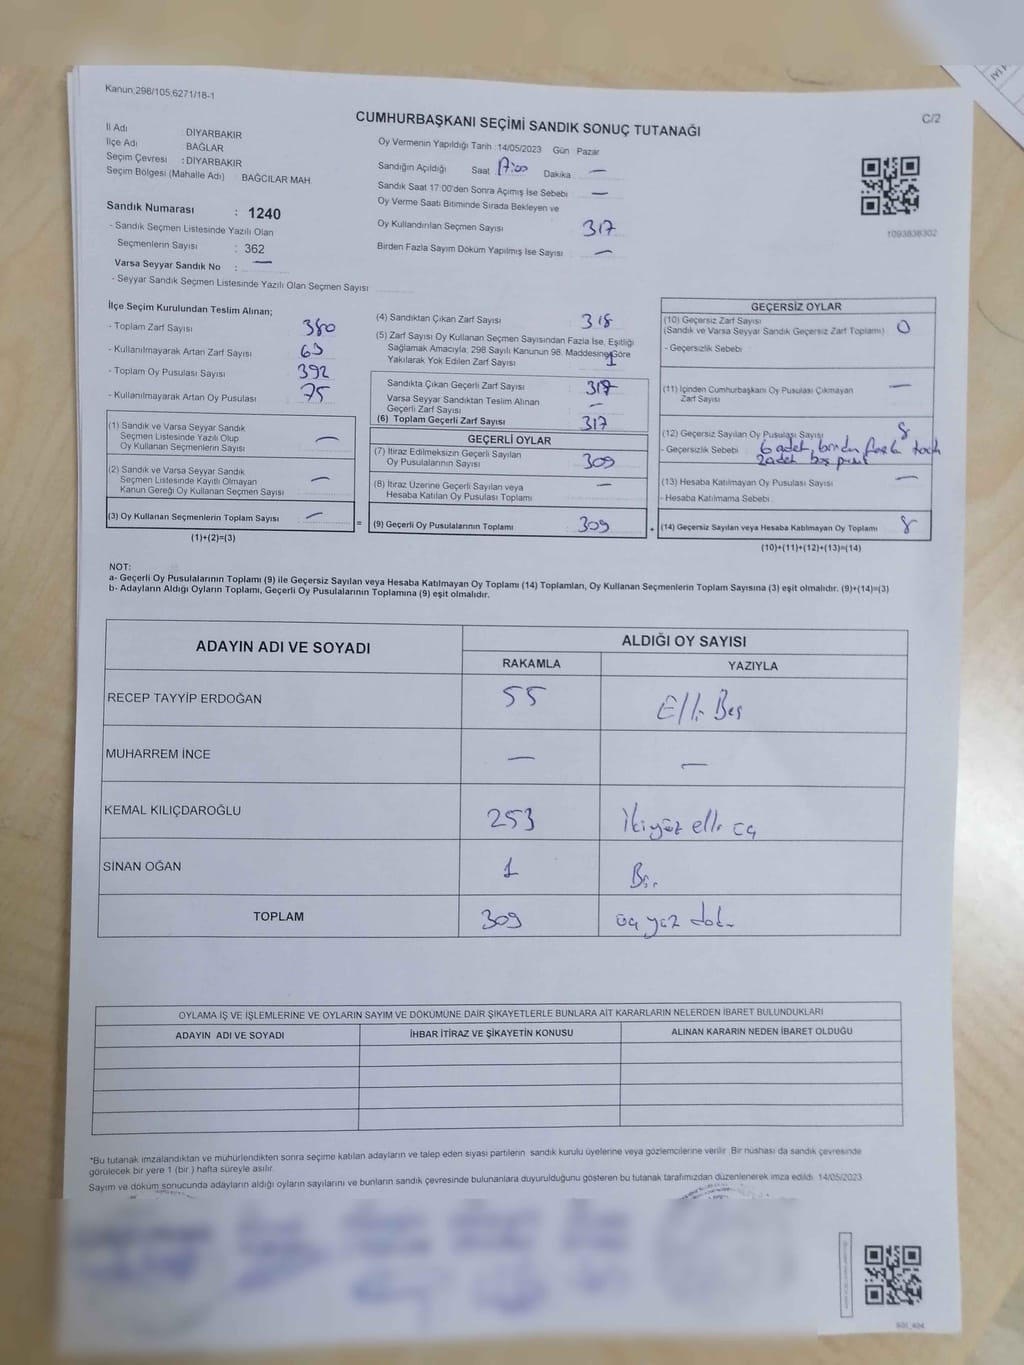 Kanun;298/105,6271/18-1
CUMHURBAŞKANI SEÇİMİ SANDIK SONUÇ TUTANAĞI
C/2
İl Adı : DİYARBAKIR
İlçe Adı : BAĞLAR
Seçim Çevresi : DİYARBAKIR
Seçim Bölgesi (Mahalle Adı) BAĞCILAR MAH.
Sandık Numarası : 1240
- Sandık Seçmen Listesinde Yazılı Olan
Seçmenlerin Sayısı : 362
Varsa Seyyar Sandık No : —
- Seyyar Sandık Seçmen Listesinde Yazılı Olan Seçmen Sayısı
Oy Vermenin Yapıldığı Tarih :14/05/2023 Gün Pazar
Sandığın Açıldığı Saat 17:00 Dakika —
Sandık Saat 17:00'den Sonra Açımış İse Sebebi —
Oy Verme Saati Bitiminde Sırada Bekleyen ve
Oy Kullandırılan Seçmen Sayısı 317
Birden Fazla Sayım Döküm Yapılmış İse Sayısı —
1093838302
İlçe Seçim Kurulundan Teslim Alınan;
- Toplam Zarf Sayısı 380
- Kullanılmayarak Artan Zarf Sayısı 63
- Toplam Oy Pusulası Sayısı 392
- Kullanılmayarak Artan Oy Pusulası 75
(1) Sandık ve Varsa Seyyar Sandık
Seçmen Listesinde Yazılı Olup
Oy Kullanan Seçmenlerin Sayısı —
(2) Sandık ve Varsa Seyyar Sandık
Seçmen Listesinde Kayıtlı Olmayan
Kanun Gereği Oy Kullanan Seçmen Sayısı —
(3) Oy Kullanan Seçmenlerin Toplam Sayısı — =
(1)+(2)=(3)
(4) Sandıktan Çıkan Zarf Sayısı 318
(5) Zarf Sayısı Oy Kullanan Seçmen Sayısından Fazla İse, Eşitliği
Sağlamak Amacıyla, 298 Sayılı Kanunun 98. Maddesine Göre
Yakılarak Yok Edilen Zarf Sayısı 1
Sandıkta Çıkan Geçerli Zarf Sayısı 317
Varsa Seyyar Sandıktan Teslim Alınan
Geçerli Zarf Sayısı —
(6) Toplam Geçerli Zarf Sayısı 317
GEÇERLİ OYLAR
(7) İtiraz Edilmeksizin Geçerli Sayılan
Oy Pusulalarının Sayısı 309
(8) İtiraz Üzerine Geçerli Sayılan veya
Hesaba Katılan Oy Pusulası Toplamı —
(9) Geçerli Oy Pusulalarının Toplamı 309 +
GEÇERSİZ OYLAR
(10) Geçersiz Zarf Sayısı
(Sandık ve Varsa Seyyar Sandık Geçersiz Zarf Toplamı) 0
- Geçersizlik Sebebi
(11) İçinden Cumhurbaşkanı Oy Pusulası Çıkmayan
Zarf Sayısı —
(12) Geçersiz Sayılan Oy Pusulası Sayısı 8
- Geçersizlik Sebebi 6 adet, birden fazla
2 adet boş pusul
(13) Hesaba Katılmayan Oy Pusulası Sayısı —
- Hesaba Katılmama Sebebi
(14) Geçersiz Sayılan veya Hesaba Katılmayan Oy Toplamı 8
(10)+(11)+(12)+(13)=(14)
NOT:
a- Geçerli Oy Pusulalarının Toplamı (9) ile Geçersiz Sayılan veya Hesaba Katılmayan Oy Toplamı (14) Toplamları, Oy Kullanan Seçmenlerin Toplam Sayısına (3) eşit olmalıdır. (9)+(14)=(3)
b- Adayların Aldığı Oyların Toplamı, Geçerli Oy Pusulalarının Toplamına (9) eşit olmalıdır.
ADAYIN ADI VE SOYADI
ALDIĞI OY SAYISI
RAKAMLA YAZIYLA
RECEP TAYYİP ERDOĞAN 55 Elli Beş
MUHARREM İNCE — —
KEMAL KILIÇDAROĞLU 253 İkiyüz elli üç
SİNAN OĞAN 1 Bir
TOPLAM 309 üç yüz dok
OYLAMA İŞ VE İŞLEMLERİNE VE OYLARIN SAYIM VE DÖKÜMÜNE DAİR ŞİKAYETLERLE BUNLARA AİT KARARLARIN NELERDEN İBARET BULUNDUKLARI
ADAYIN ADI VE SOYADI İHBAR İTİRAZ VE ŞİKAYETİN KONUSU ALINAN KARARIN NEDEN İBARET OLDUĞU
*Bu tutanak imzalandıktan ve mühürlendikten sonra seçime katılan adayların ve talep eden siyasi partilerin sandık kurulu üyelerine veya gözlemcilerine verilir. Bir nüshası da sandık çevresinde
görülecek bir yere 1 (bir ) hafta süreyle asılır.
Sayım ve döküm sonucunda adayların aldığı oyların sayılarını ve bunların sandık çevresinde bulunanlara duyurulduğunu gösteren bu tutanak tarafımızdan düzenlenerek imza edildi. 14/05/2023